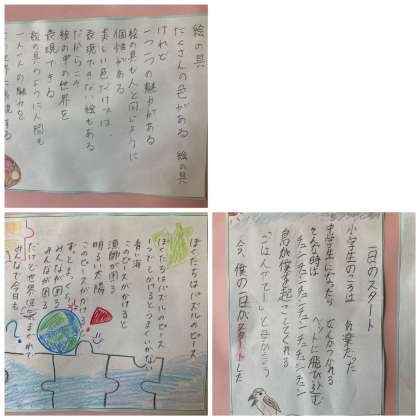 絵の具
たくさんの色がある 絵の具
けれど
一つ一つの魅力がある
絵の具も人と同じように
個性がある
美しい色だけでは
表現できない絵もある
だからこそ
絵の中の世界を
表現できる
絵の具のように人間も
一人一人の魅力を
ぼくたちはパズルのピース
ぼくたちはパズルのピース
一つでもかけるとうまくいかない
青い海
このピースがかけると
漁師が困る
明るい太陽
このピースがかけると
ずっとまっくら
みんなが困る
みんなが困る
だけど世界は
みんなで今日も
一日のスタート
小学生のころは
中学生になったら
そんな時は ベッドに飛びこむ
チュンチュンチュンチュンチュン
鳥が僕を起こしてくれる
「ごはんができたよー」と母が言う
今、僕の一日がスタートした